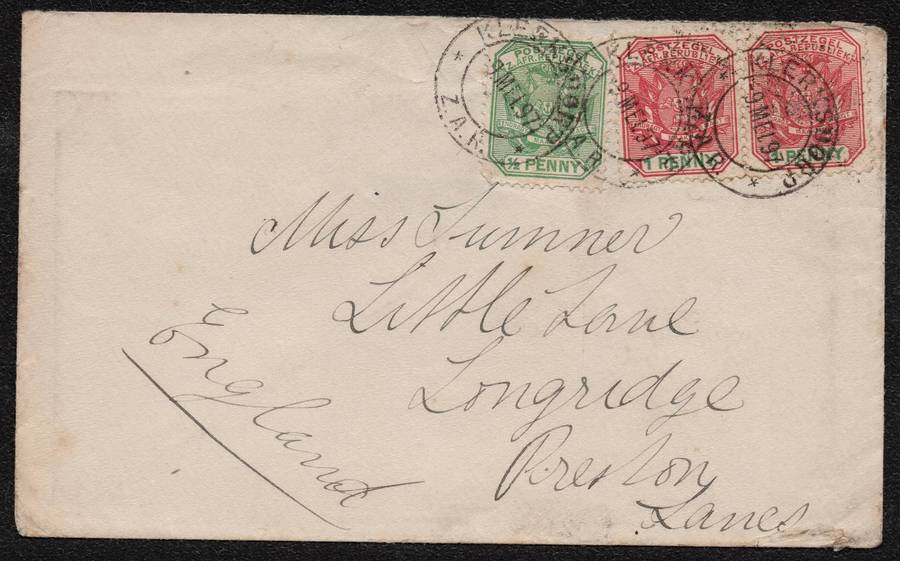 KLERKSDORP
9 MEI 97
Z.A.R.
POSTZEGEL
Z. AFR. REPUBLIEK
½ PENNY
POSTZEGEL
Z. AFR. REPUBLIEK
1 PENNY
POSTZEGEL
Z. AFR. REPUBLIEK
1 PENNY
Miss Sumner
Little Lane
Longridge
Preston
Lancs
England